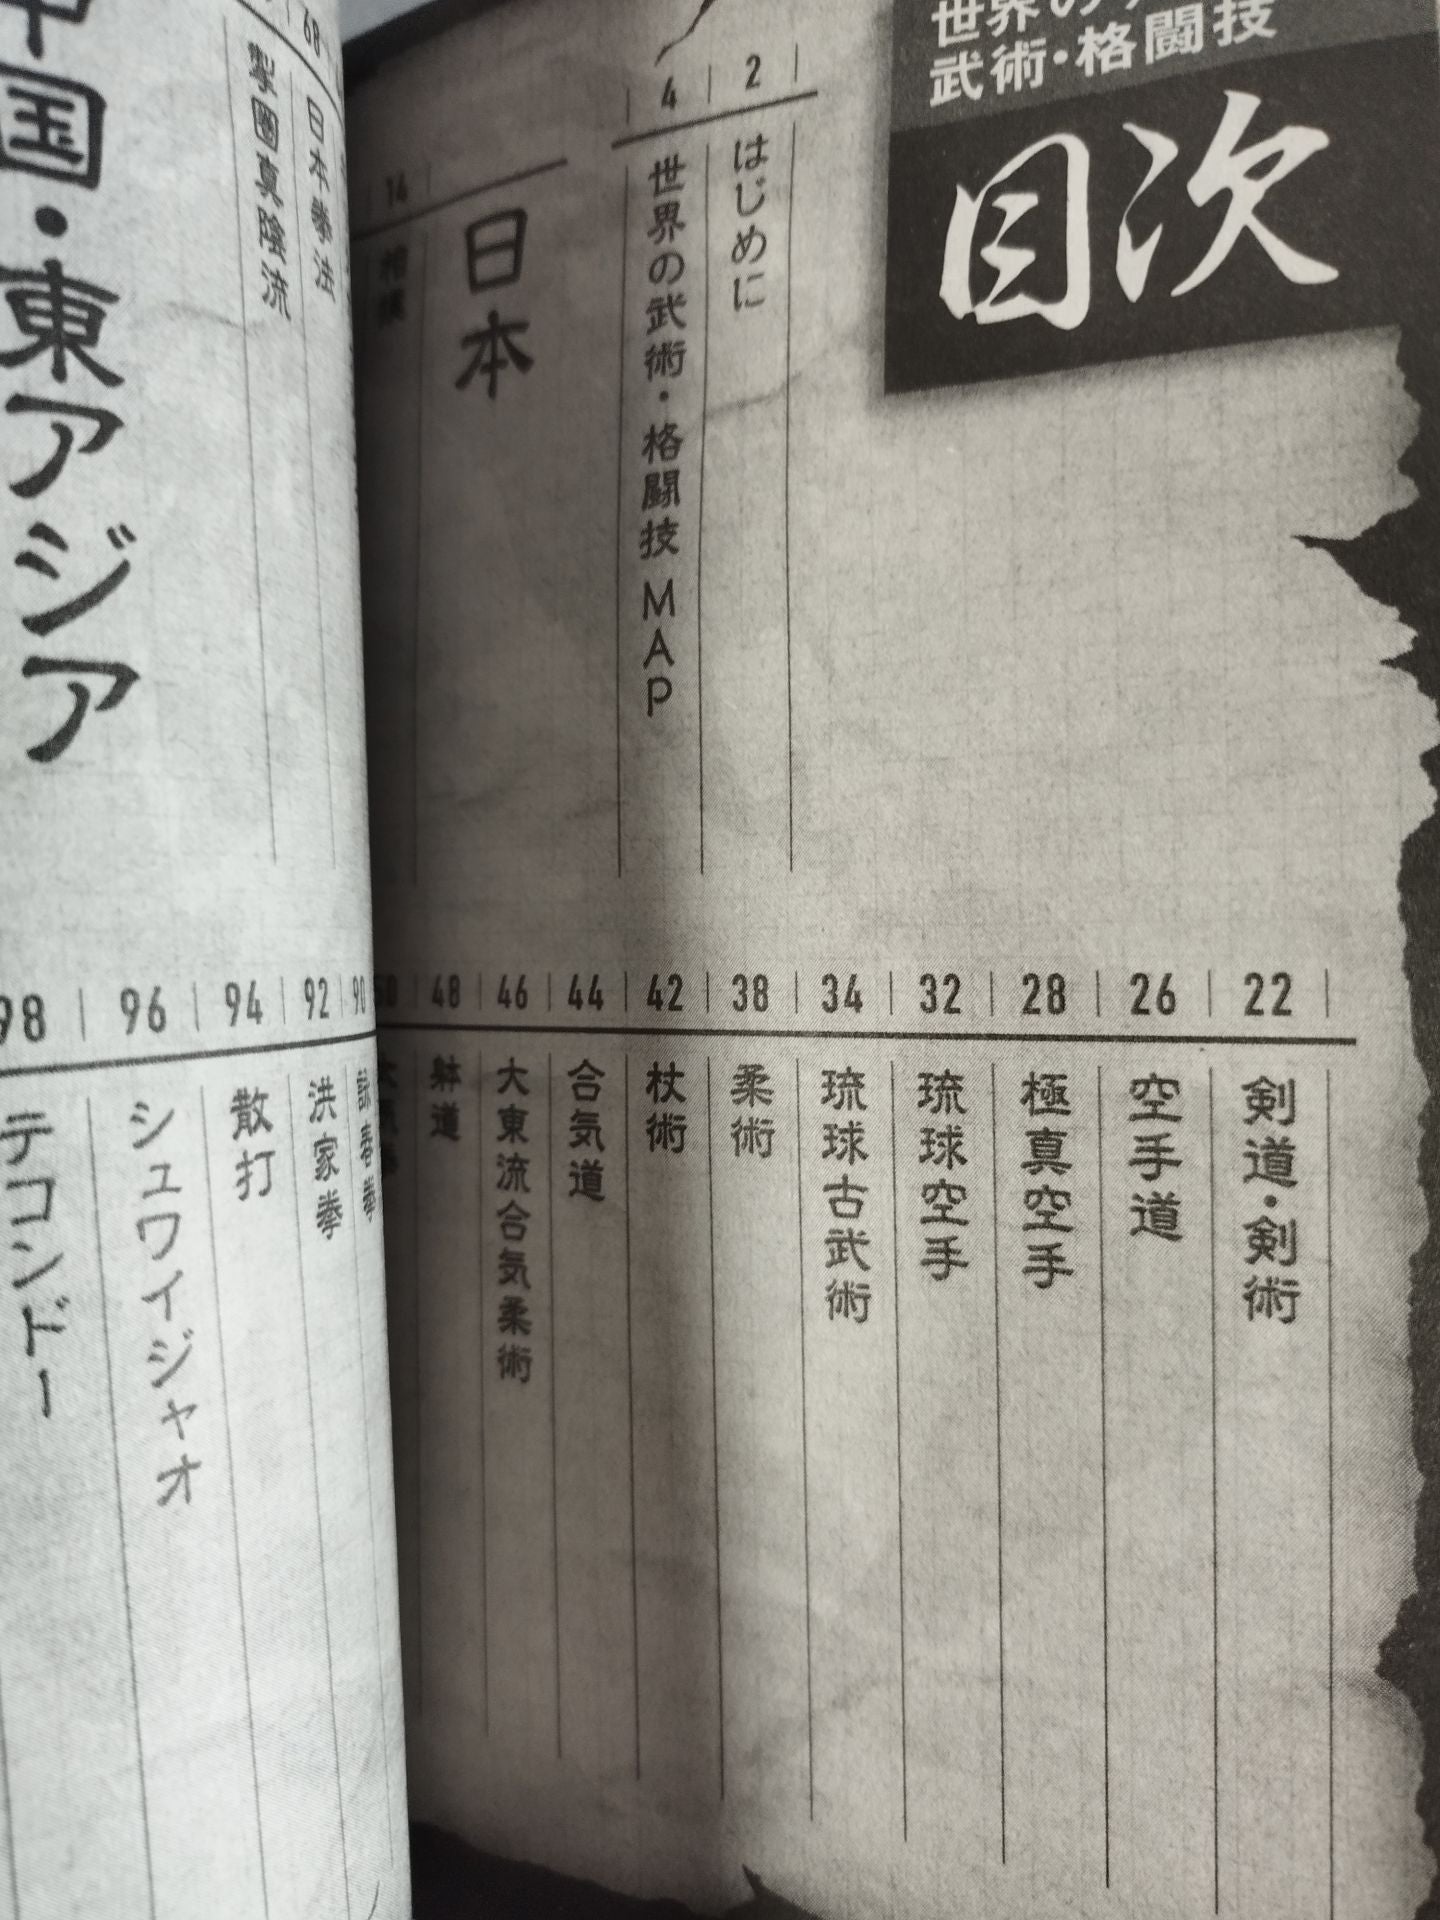 武術・格闘技
目次
2
はじめに
4
世界の武術・格闘技MAP
日本
14
相撲
22
剣道・剣術
26
空手道
28
極真空手
32
琉球空手
34
琉球古武術
38
柔術
42
杖術
44
合気道
46
大東流合気柔術
48
躰道
68
日本拳法
掣圏真陰流
中国・東アジア
90
詠春拳
92
洪家拳
94
散打
96
シュワイジャオ
98
テコンドー